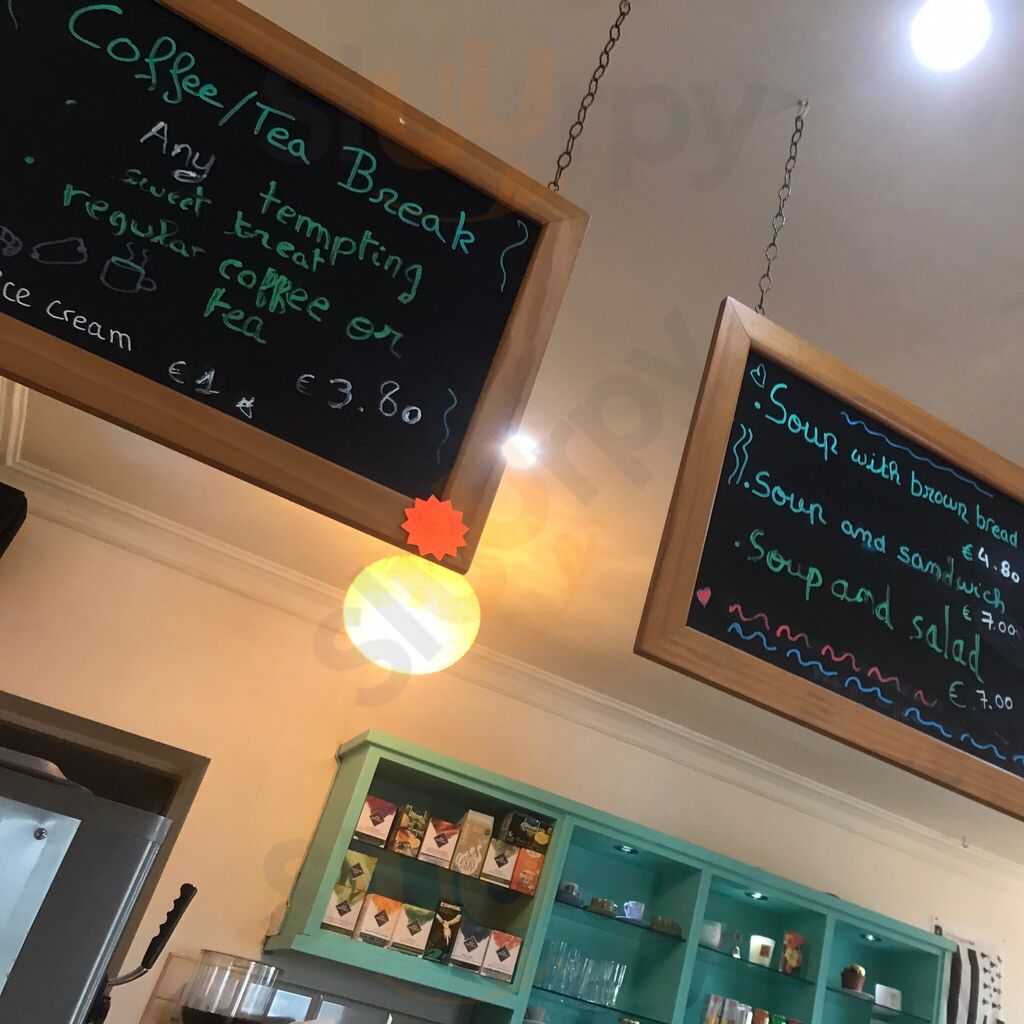 Coffee/Tea Break
Any tempting
sweet treat
regular coffee or
tea
ice cream €1 € 3.80
.Soup with brown bread
€ 4.80
.Soup and sandwich
€ 7.00
.Soup and salad
€ 7.00
Sluurpy
Sluurpy
Sluurpy